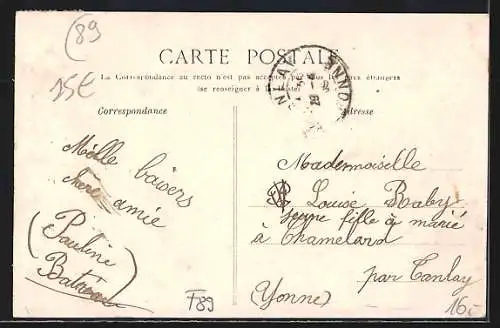 (89
15€
CARTE POSTALE
La Correspondance au recto n'est pas acceptée par tous les pays étrangers
(se renseigner à la Poste)
Correspondance
Adresse
Mille baisers
chère amie
(Pauline
TANLAY
YONNE
Mademoiselle
Louise Raby
jeune fille à marié
à Chamelard
par Tanlay
(Yonne)
F89
16c